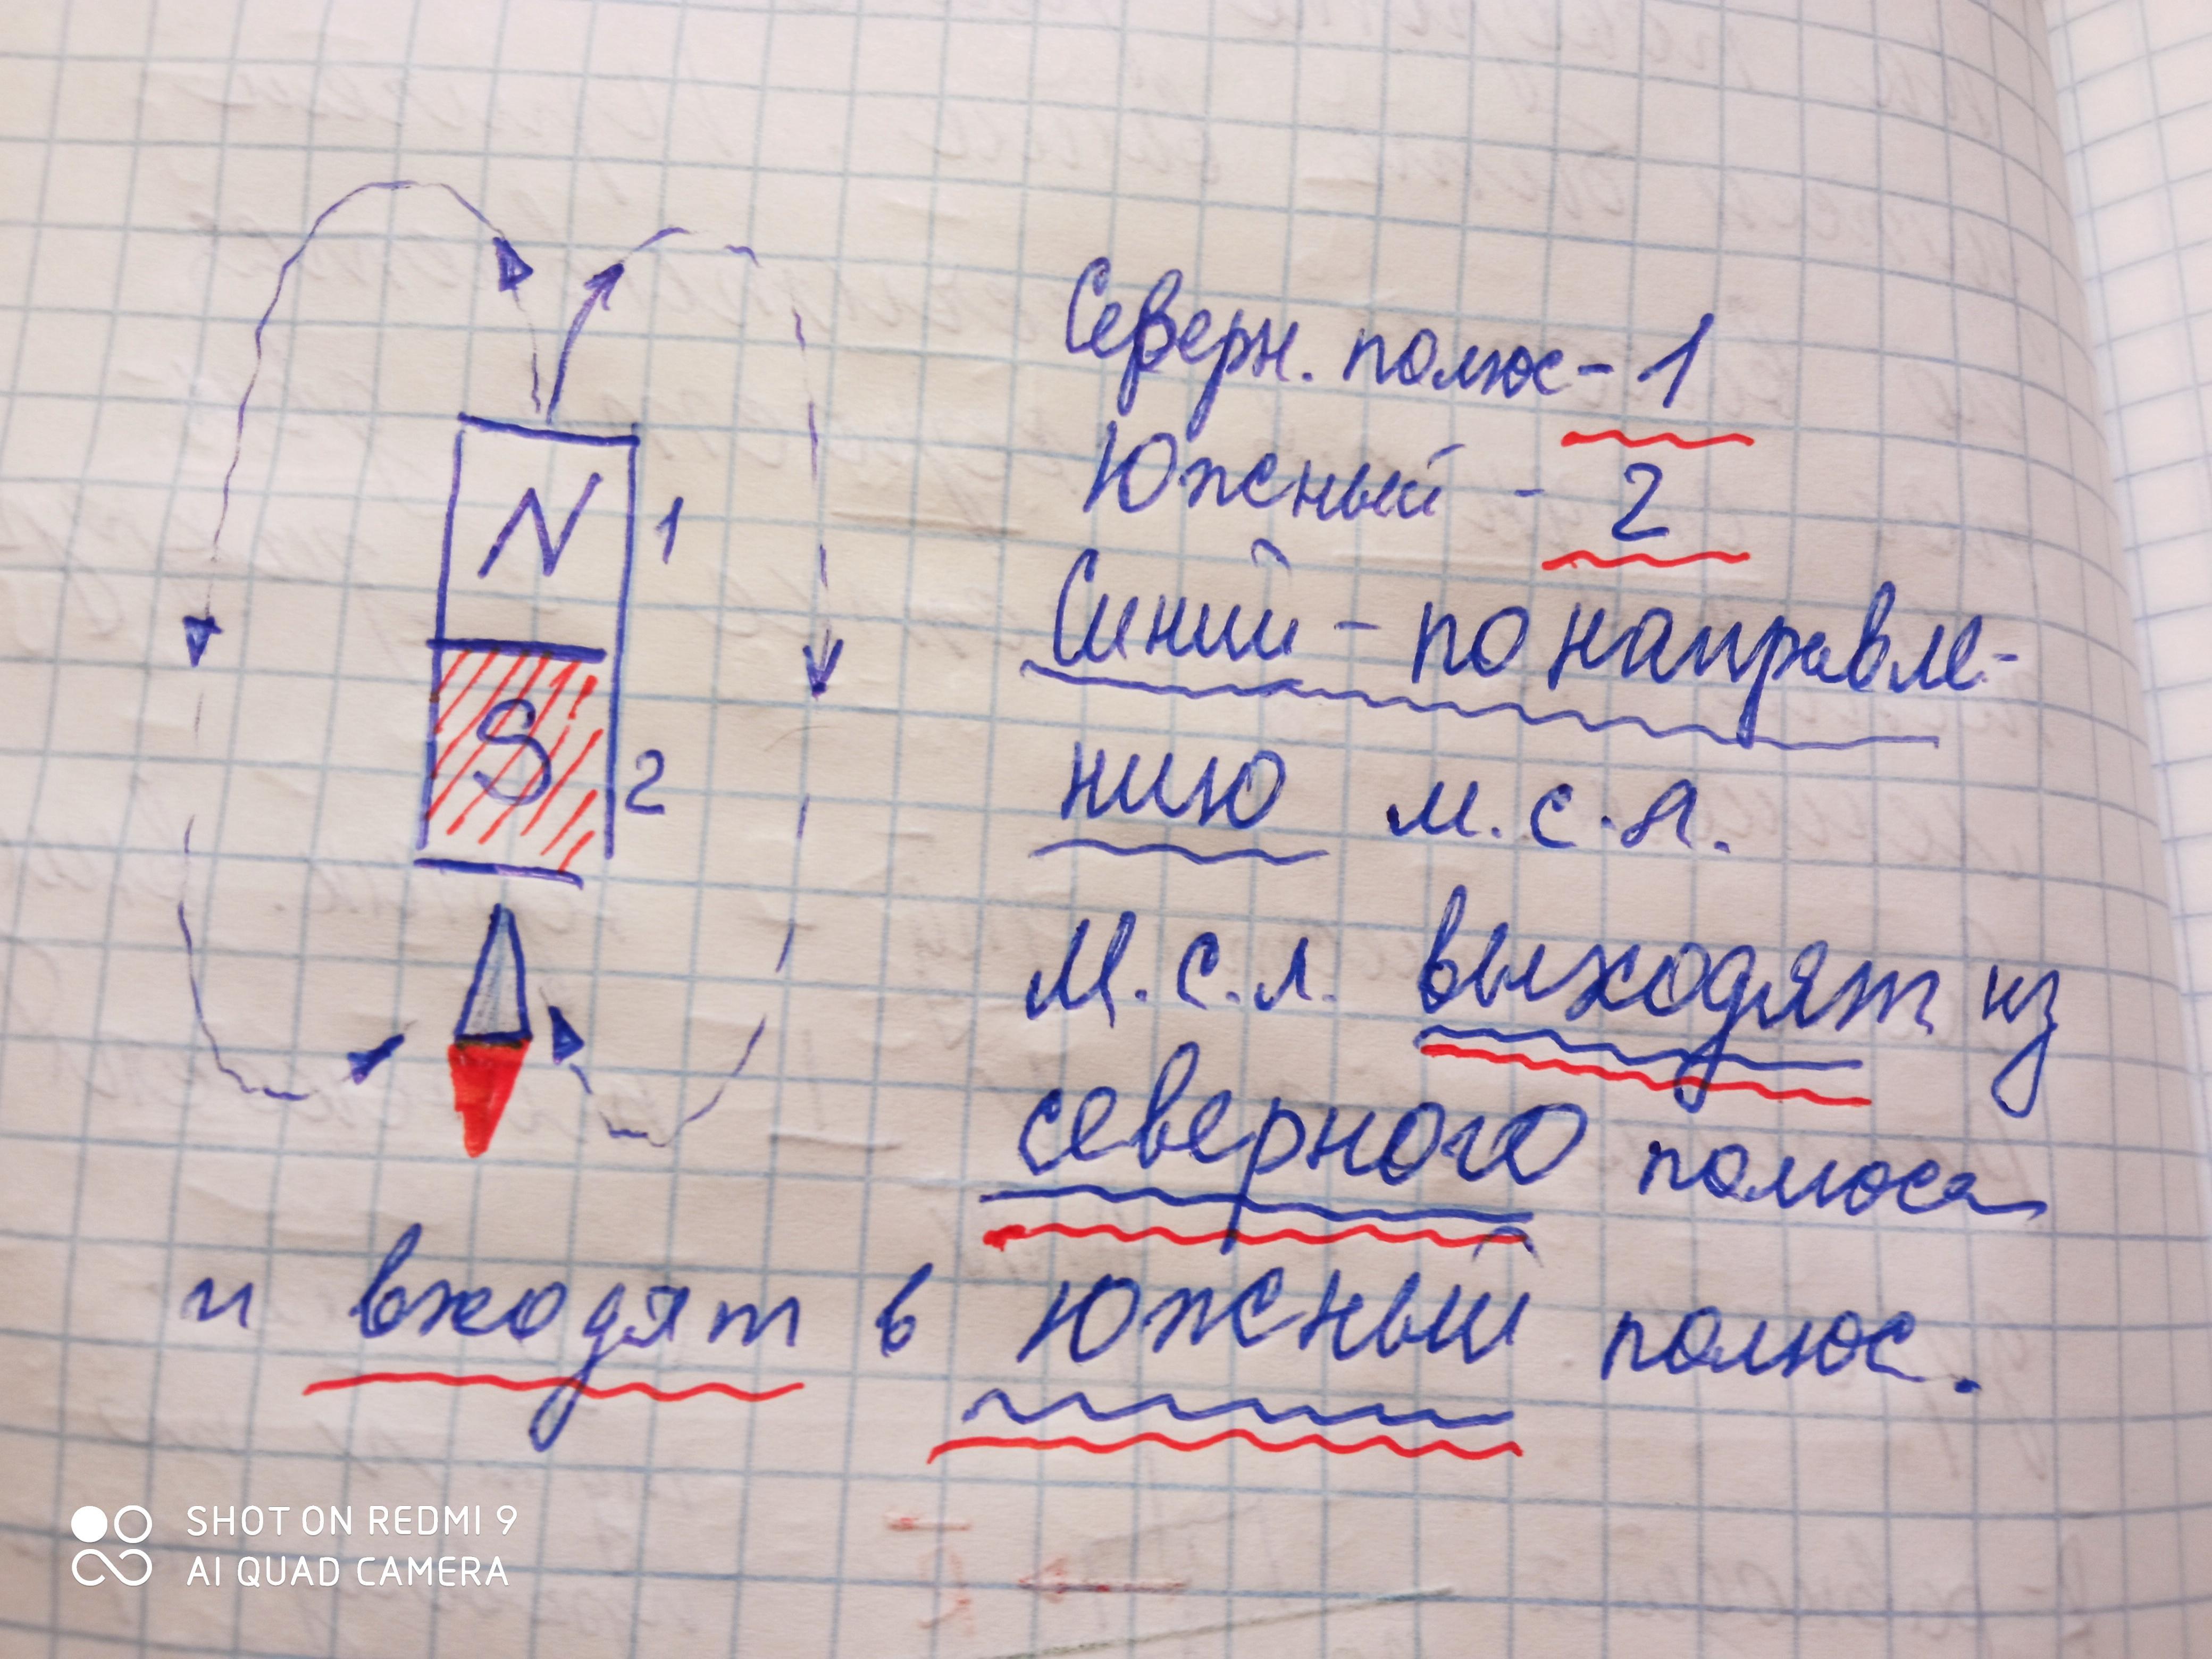 Северн. полюс - 1
N 1
Южный - 2
Синий - по направле-
S 2
нию м.с.л.
М.с.л. выходят из
северного полюса
и входят в южный полюс.
SHOT ON REDMI 9
AI QUAD CAMERA